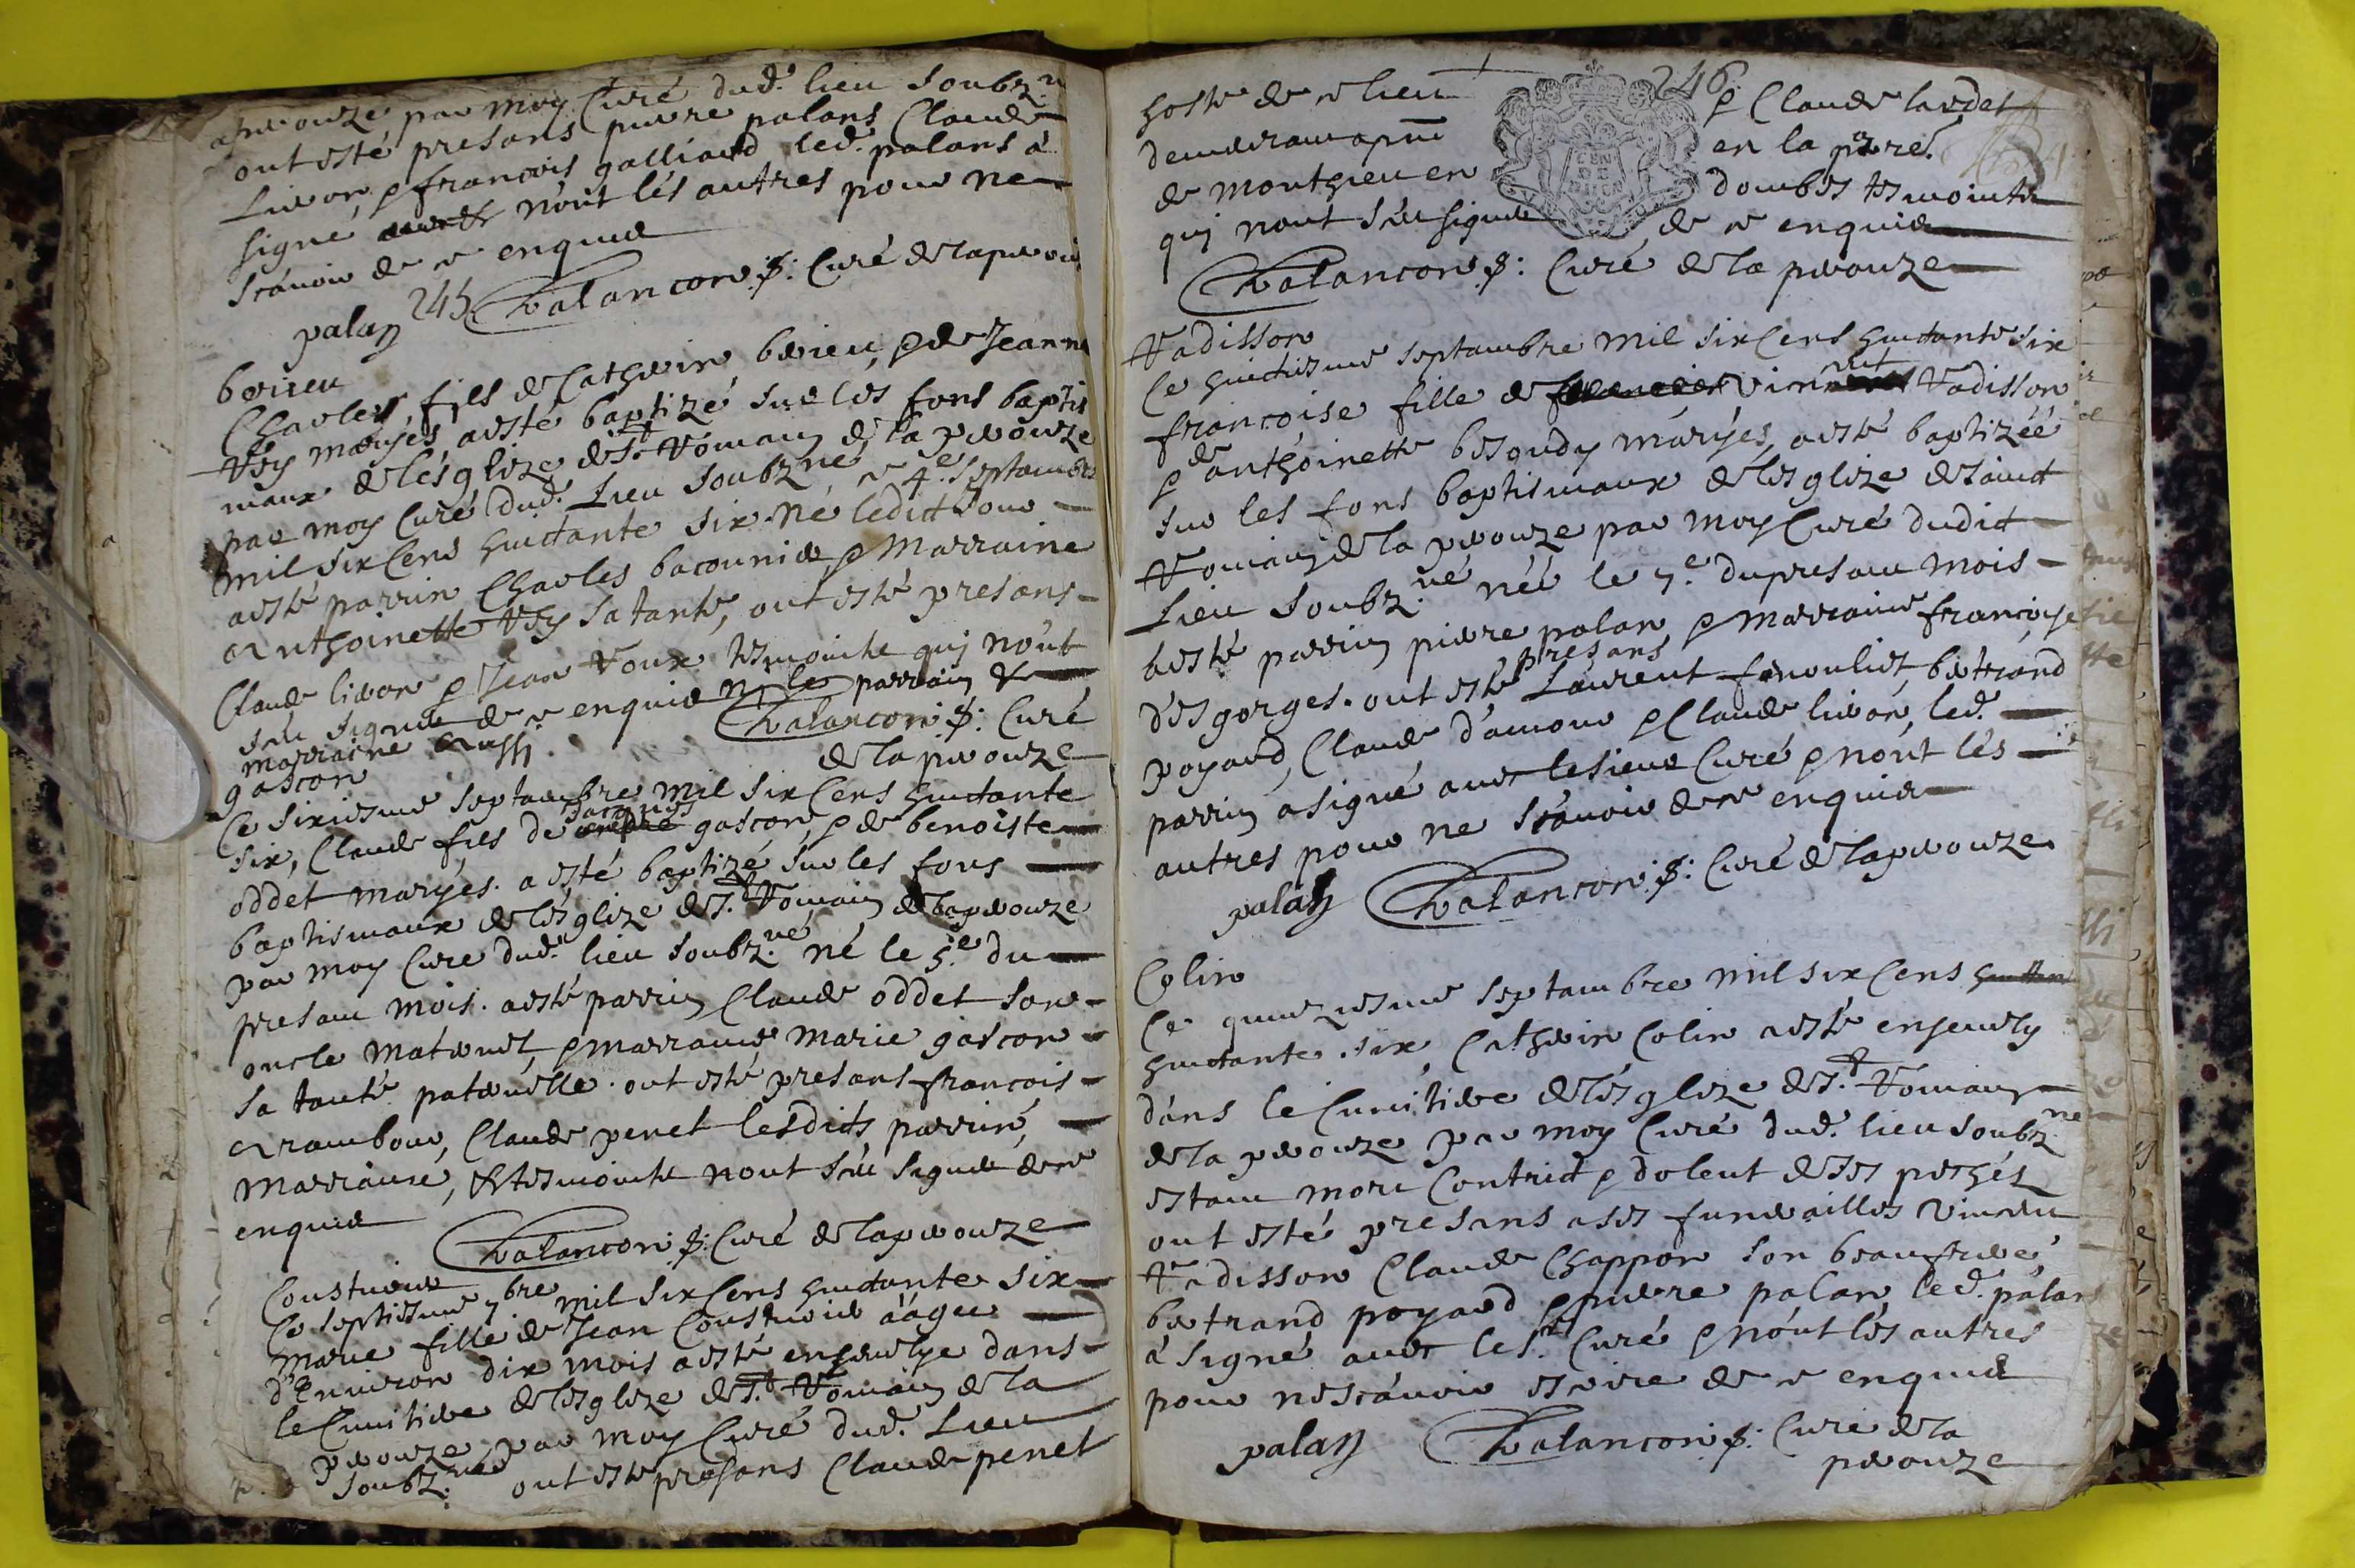 par moy Curé dud. lieu Soubz.né
ont esté presans pierre palans Claude
Livon, & francois galliard led. palans à
signé n'ont lés autres pour ne
scávoir de ce enquis
palan 245. Balancon p: Curé de la perouz
berieu
Charles, fils de Catherin berieu, & de Jeanne
Rey maryés, a esté baptizé sur lés fons baptis
maux de lésglize de St. Romain de la perouze
par moy Curé dud. Lieu Soubz.né ce 4e. Septambre
mil six Cens huictante six. né ledict Jour
a esté parrin Charles & Marraine
Anthoinette Rey sa tante, ont esté presans
Claude livon & Jean Roux tesmointz quj n'ont
sceu signer de ce enquis nj le parrain &
marraine Aussj. Balancon p: Curé
de la perouze
gascon
Ce sixiesme septambre mil six Cens huictante
six, Claude fils de Jacques gascon, & de benoiste
oddet maryés. a esté baptizé sur les fons
baptismaux de lésglize de St. Romain de la perouze
par moy Cure dud. lieu soubz.né né le 5e. du
presant mois. a esté parrin Claude oddet son
oncle maternel, & marraine marie gascon
sa tante paternelle. ont esté presans francois
Arambour, Claude penet lesdits parrin,
marraine, & tesmointz nont sceu signer de ce
enquis
Balancon p: Curé de la perouze
Ce septiesme 7bre mil six Cens huictante six
marie fille de Jean aágée
d'Environ dix mois a esté ensevelye dans
le Cimitiere de lésglize de St. Romain de la
perouze, par moy Curé dud. Lieu
soubz.né ont esté presans Claude penet
hoste de ce lieu 246. & Claude lardet
demeurant en la
de monthieu en dombes tesmointz
quj nont sceu signer de ce enquis
Balancon p: Curé de la perouze
Vadisson
Ce huictiesme septambre mil six Cens huictante six
francoise fille de Vadisson
& de anthoinette maryés, a esté baptizéé
sur les fons baptismaux de lésglize de saint
Romain de la perouze par moy Curé dudict
Lieu Soubz.né néé le 7e. du presant mois
a esté parrin pierre palan, & marraine francoyse
dés gorges. ont esté presans Laurent fenouliet, bertrand
poyard, Claude d'amour & Claude livon, led.
parrin a signé avec le sieur Curé & n'ont lés
autres pour ne scávoir de ce enquis
palan Balancon p: Curé de la perouze
Colin
Ce quinziesme septambre mil six Cens
huictante. six, Catherin Colin a esté ensevely
dans le Cimitiere de lésglize de St. Romain
de la perouze par moy Curé dud. lieu soubz.né
estant mort Contrict & dolent de ses pechés
ont esté presans a ses funerailles
Vadisson Claude Chappon son beaufrere,
bertrand poyard & pierre palan, led. palan
à signé avec le sr. Curé & nont lés autres
pour ne scávoir escrire de ce enquis
palan Balancon p: Curé de la
perouze